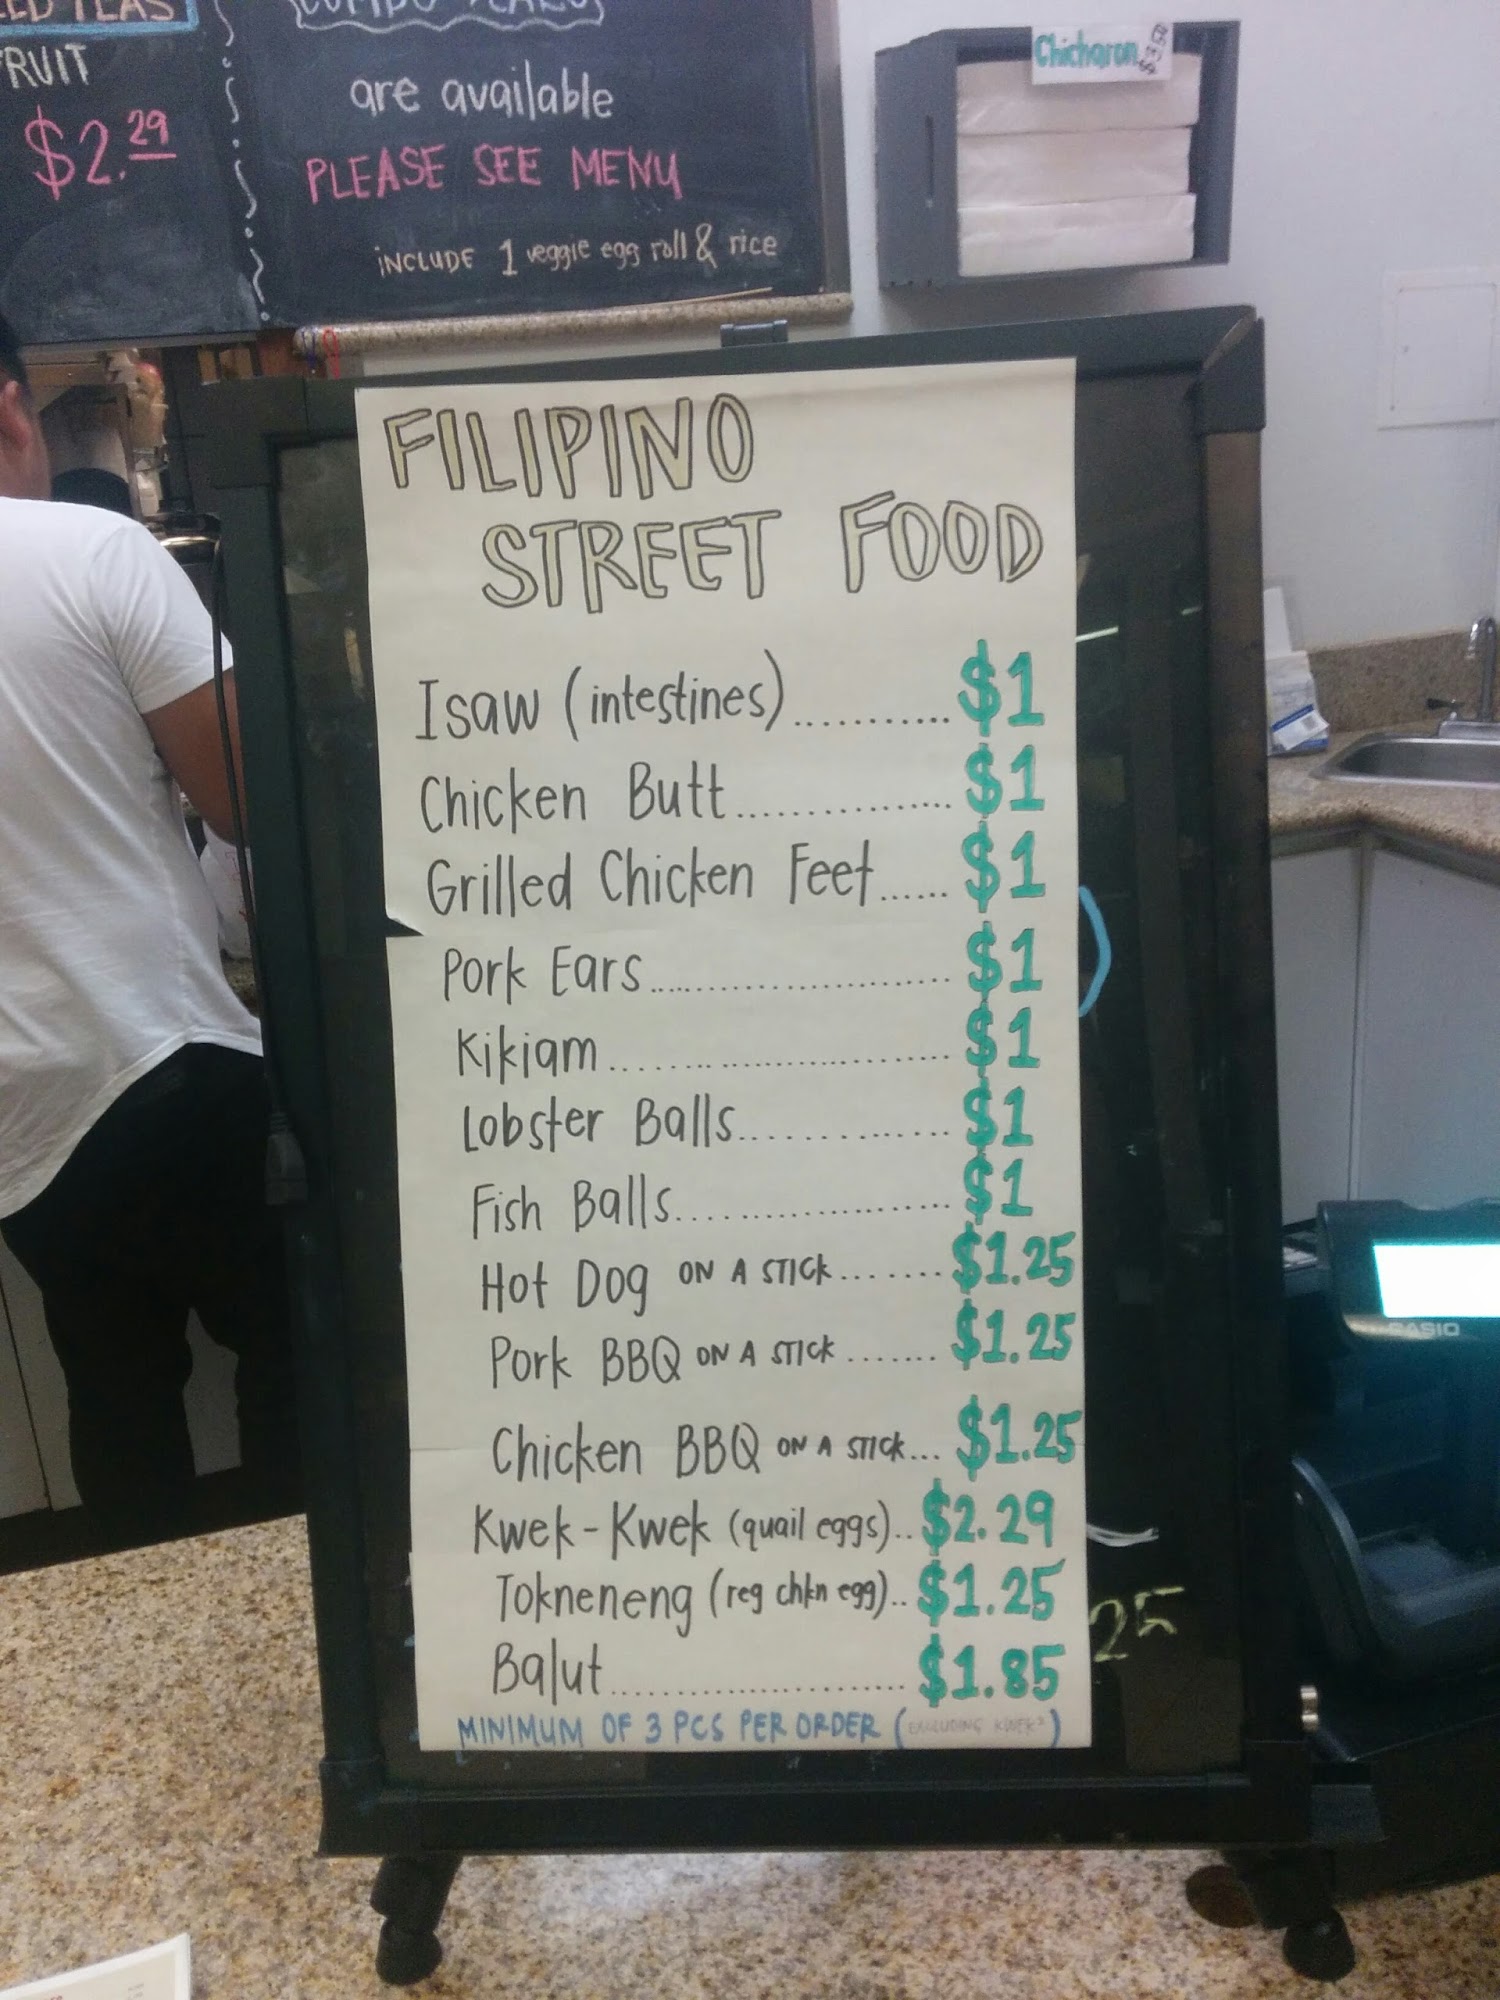 TEAS
FRUIT
$2.29
are available
PLEASE SEE MENU
INCLUDE 1 veggie egg roll & rice
Chicharon $3.50
FILIPINO
STREET FOOD
Isaw (intestines)........... $1
Chicken Butt................ $1
Grilled Chicken Feet...... $1
Pork Ears............................ $1
Kikiam............................ $1
Lobster Balls.............. $1
Fish Balls..................... $1
Hot Dog ON A STICK....... $1.25
Pork BBQ ON A STICK....... $1.25
Chicken BBQ ON A STICK... $1.25
Kwek-Kwek (quail eggs).. $2.29
Tokneneng (reg chkn egg).. $1.25
Balut........................ $1.85
MINIMUM OF 3 PCS PER ORDER (EXCLUDING KWEK²)
25
CASIO